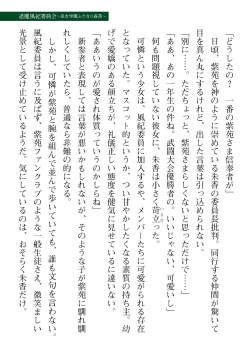 退魔風紀委員会
「どうしたの？　一番の紫苑さま信奉者が」
日頃、紫苑を神のように崇めている朱香の委員長批判。同行する仲間が驚いて
目を真ん丸にするけれど、出した言葉は引っ込められない。
「別に……。ただちょっと、紫苑さまらしくないと思っただけで……」
「ああ、あの一年生の件ね。武闘大会優勝者の。いいじゃない、可愛いし」
何も問題視していない彼女に、朱香は小さく苛立った。
可憐という少女は、風紀委員に加入するや、メンバーたちに可愛がられる存在
となっていた。マスコット的というか、つい甘やかしたくなる素質の持ち主。幼
げで愛嬌のある顔立ちが、礼儀正しい態度を健気に見せているに違いない。
「ああいうのが愛され体質っていうのかしらね」
新参者と表現しては言葉が悪いかもしれないが、そのような子が紫苑に馴れ馴
れしくしていたら、普通なら非難の的になる。
しかし、可憐が紫苑と腕を組んで並んで歩いていても、誰も文句を言わない。
風紀委員は言うに及ばず、紫苑ファンクラブのような一般生徒さえ、微笑ましい
光景として受け止めているようだ。気にしているのは、おそらく朱香だけ。